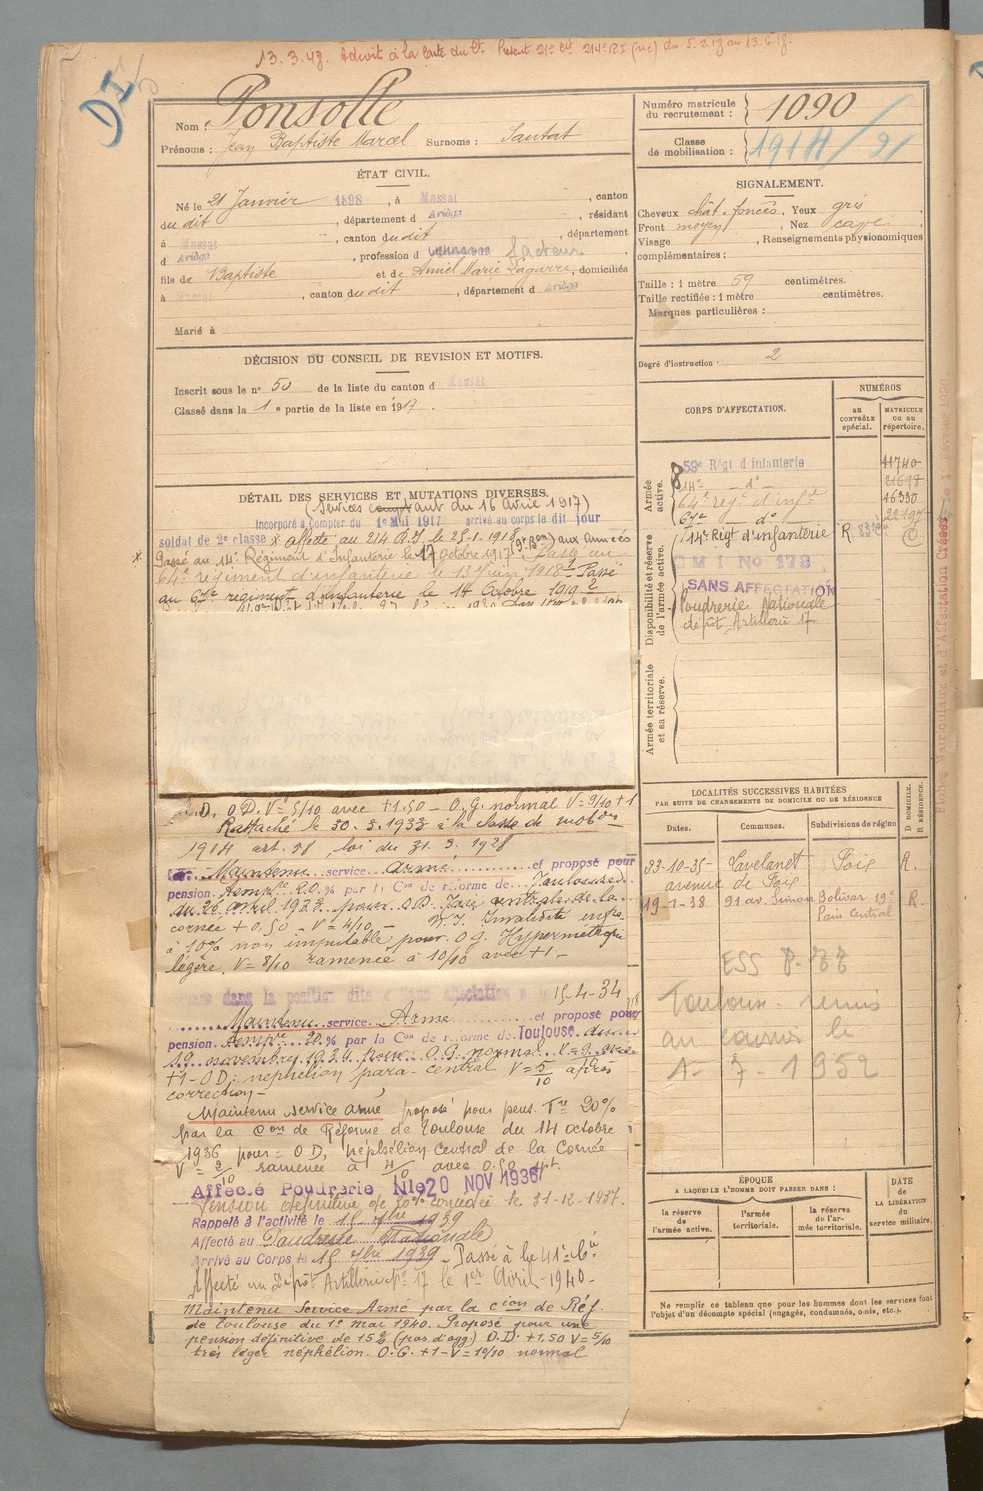 13.3.48. Admit à la Carte du Ct. Présent 21e Cie 214e RI (uc) du 5.2.18 au 13.6.18.
Nom : Ponsolle
Prénoms : Jean Baptiste Marcel Surnome : Sautat
ÉTAT CIVIL.
Né le 21 Janvier 1898, à Massat, canton
du dit, département d Ariège, résidant
à Massat, canton du dit, département
d Ariège, profession d facteur,
fils de Baptiste et de Marie Lagarre, domiciliés
à Massat, canton du dit, département d Ariège
Marié à
DÉCISION DU CONSEIL DE REVISION ET MOTIFS.
Inscrit sous le n° 50 de la liste du canton d Massat
Classé dans la 1 e partie de la liste en 1917.
DÉTAIL DES SERVICES ET MUTATIONS DIVERSES.
(Services comptant du 16 Avril 1917)
Incorporé à compter du 1er Mai 1917 arrivé au corps le dit jour
soldat de 2e classe x affecté au 214 R.I. le 25-1-1918 aux armées
x Passé au 14e Régiment d'Infanterie le 17 octobre 1917. Passé au
64e régiment d'infanterie le 13 Juin 1918. Passé
au 67e régiment d'infanterie le 14 Octobre 1919
O.D. V= 5/10 avec +1.50 - O.G. normal V= 9/10 +1
Rattaché le 30.3.1933 à la classe de mobon
1914 art. 58, loi du 31.3.1928
Maintenu service armé et proposé pour
pension Tempre 20 % par la Con de réforme de Toulouse
du 26 avril 1932 pour O.D. taie centrale de la
cornée +0,50 - V= 4/10 - N.I. Invalidité infre
à 10% non imputable pour O.G. Hypermétropie
légère, V= 8/10 ramenée à 10/10 avec +1 -
dans la position dite « Sans affectation » 15-4-34
Maintenu service Armé et proposé pour
pension Tempre 20 % par la Con de réforme de Toulouse du
19 novembre 1934 pour O.G. normal V= 9 avec
+1 - OD : néphélion para-central V= 5/10 après
correction -
Maintenu service armé proposé pour pens. Tre 20%
par la Con de Réforme de Toulouse du 14 octobre
1936 pour = OD, Néphélion Central de la Cornée
V = 2/10 ramenée à 4/10 avec 0.50 spt.
Affecté Poudrerie Nle 20 NOV 1936
Pension définitive de 20% concédée le 31-12-1937.
Rappelé à l'activité le 15 7bre 1939
Affecté au Poudrerie Nationale
Arrivé au Corps le 15 7bre 1939 - Passé à le 41e Cie
Affecté au Dépôt Artillerie No 17 le 1er Avril 1940 -
Maintenu Service Armé par la Cion de Réf.
de Toulouse du 1er mai 1940. Proposé pour une
pension définitive de 15% (pas d'agg) O.D. +1,50 V= 5/10
très léger néphélion. O.G. +1 - V= 10/10 normal
Numéro matricule
du recrutement : 1090
Classe
de mobilisation : 1914 / 21
SIGNALEMENT.
Cheveux chât. foncés, Yeux gris,
Front moyen, Nez cave,
Visage , Renseignements physionomiques
complémentaires :
Taille : 1 mètre 59 centimètres.
Taille rectifiée : 1 mètre centimètres.
Marques particulières :
Degré d'instruction : 2
CORPS D'AFFECTATION.
NUMÉROS
au
CONTRÔLE
spécial.
MATRICULE
ou au
répertoire.
Armée
active.
59e Régt d'infanterie 11740
14e - do - 21697
64e régt d'infie 16330
67e do 22197
Disponibilité et réserve
de l'armée active.
14e Régt d'infanterie R.
C M I No 178
SANS AFFECTATION
Poudrerie Nationale
dépôt Artillerie 17
Armée territoriale
et sa réserve.
LOCALITÉS SUCCESSIVES HABITÉES
PAR SUITE DE CHANGEMENTS DE DOMICILE OU DE RÉSIDENCE
Dates. Communes. Subdivisions de région
D DOMICILE.
R RÉSIDENCE.
23-10-35 Lavelanet Foix R.
avenue de Foix
19-1-38 91 av. Simon Bolivar 19e
Paris Central R.
Toulouse. remis
au courrier le
1-7-1952
ÉPOQUE
A LAQUELLE L'HOMME DOIT PASSER DANS :
la réserve
de
l'armée active.
l'armée
territoriale.
la réserve
de l'ar-
mée territoriale.
DATE
de
la LIBÉRATION
du
service militaire.
Ne remplir ce tableau que pour les hommes dont les services font
l'objet d'un décompte spécial (engagés, condamnés, omis, etc.).